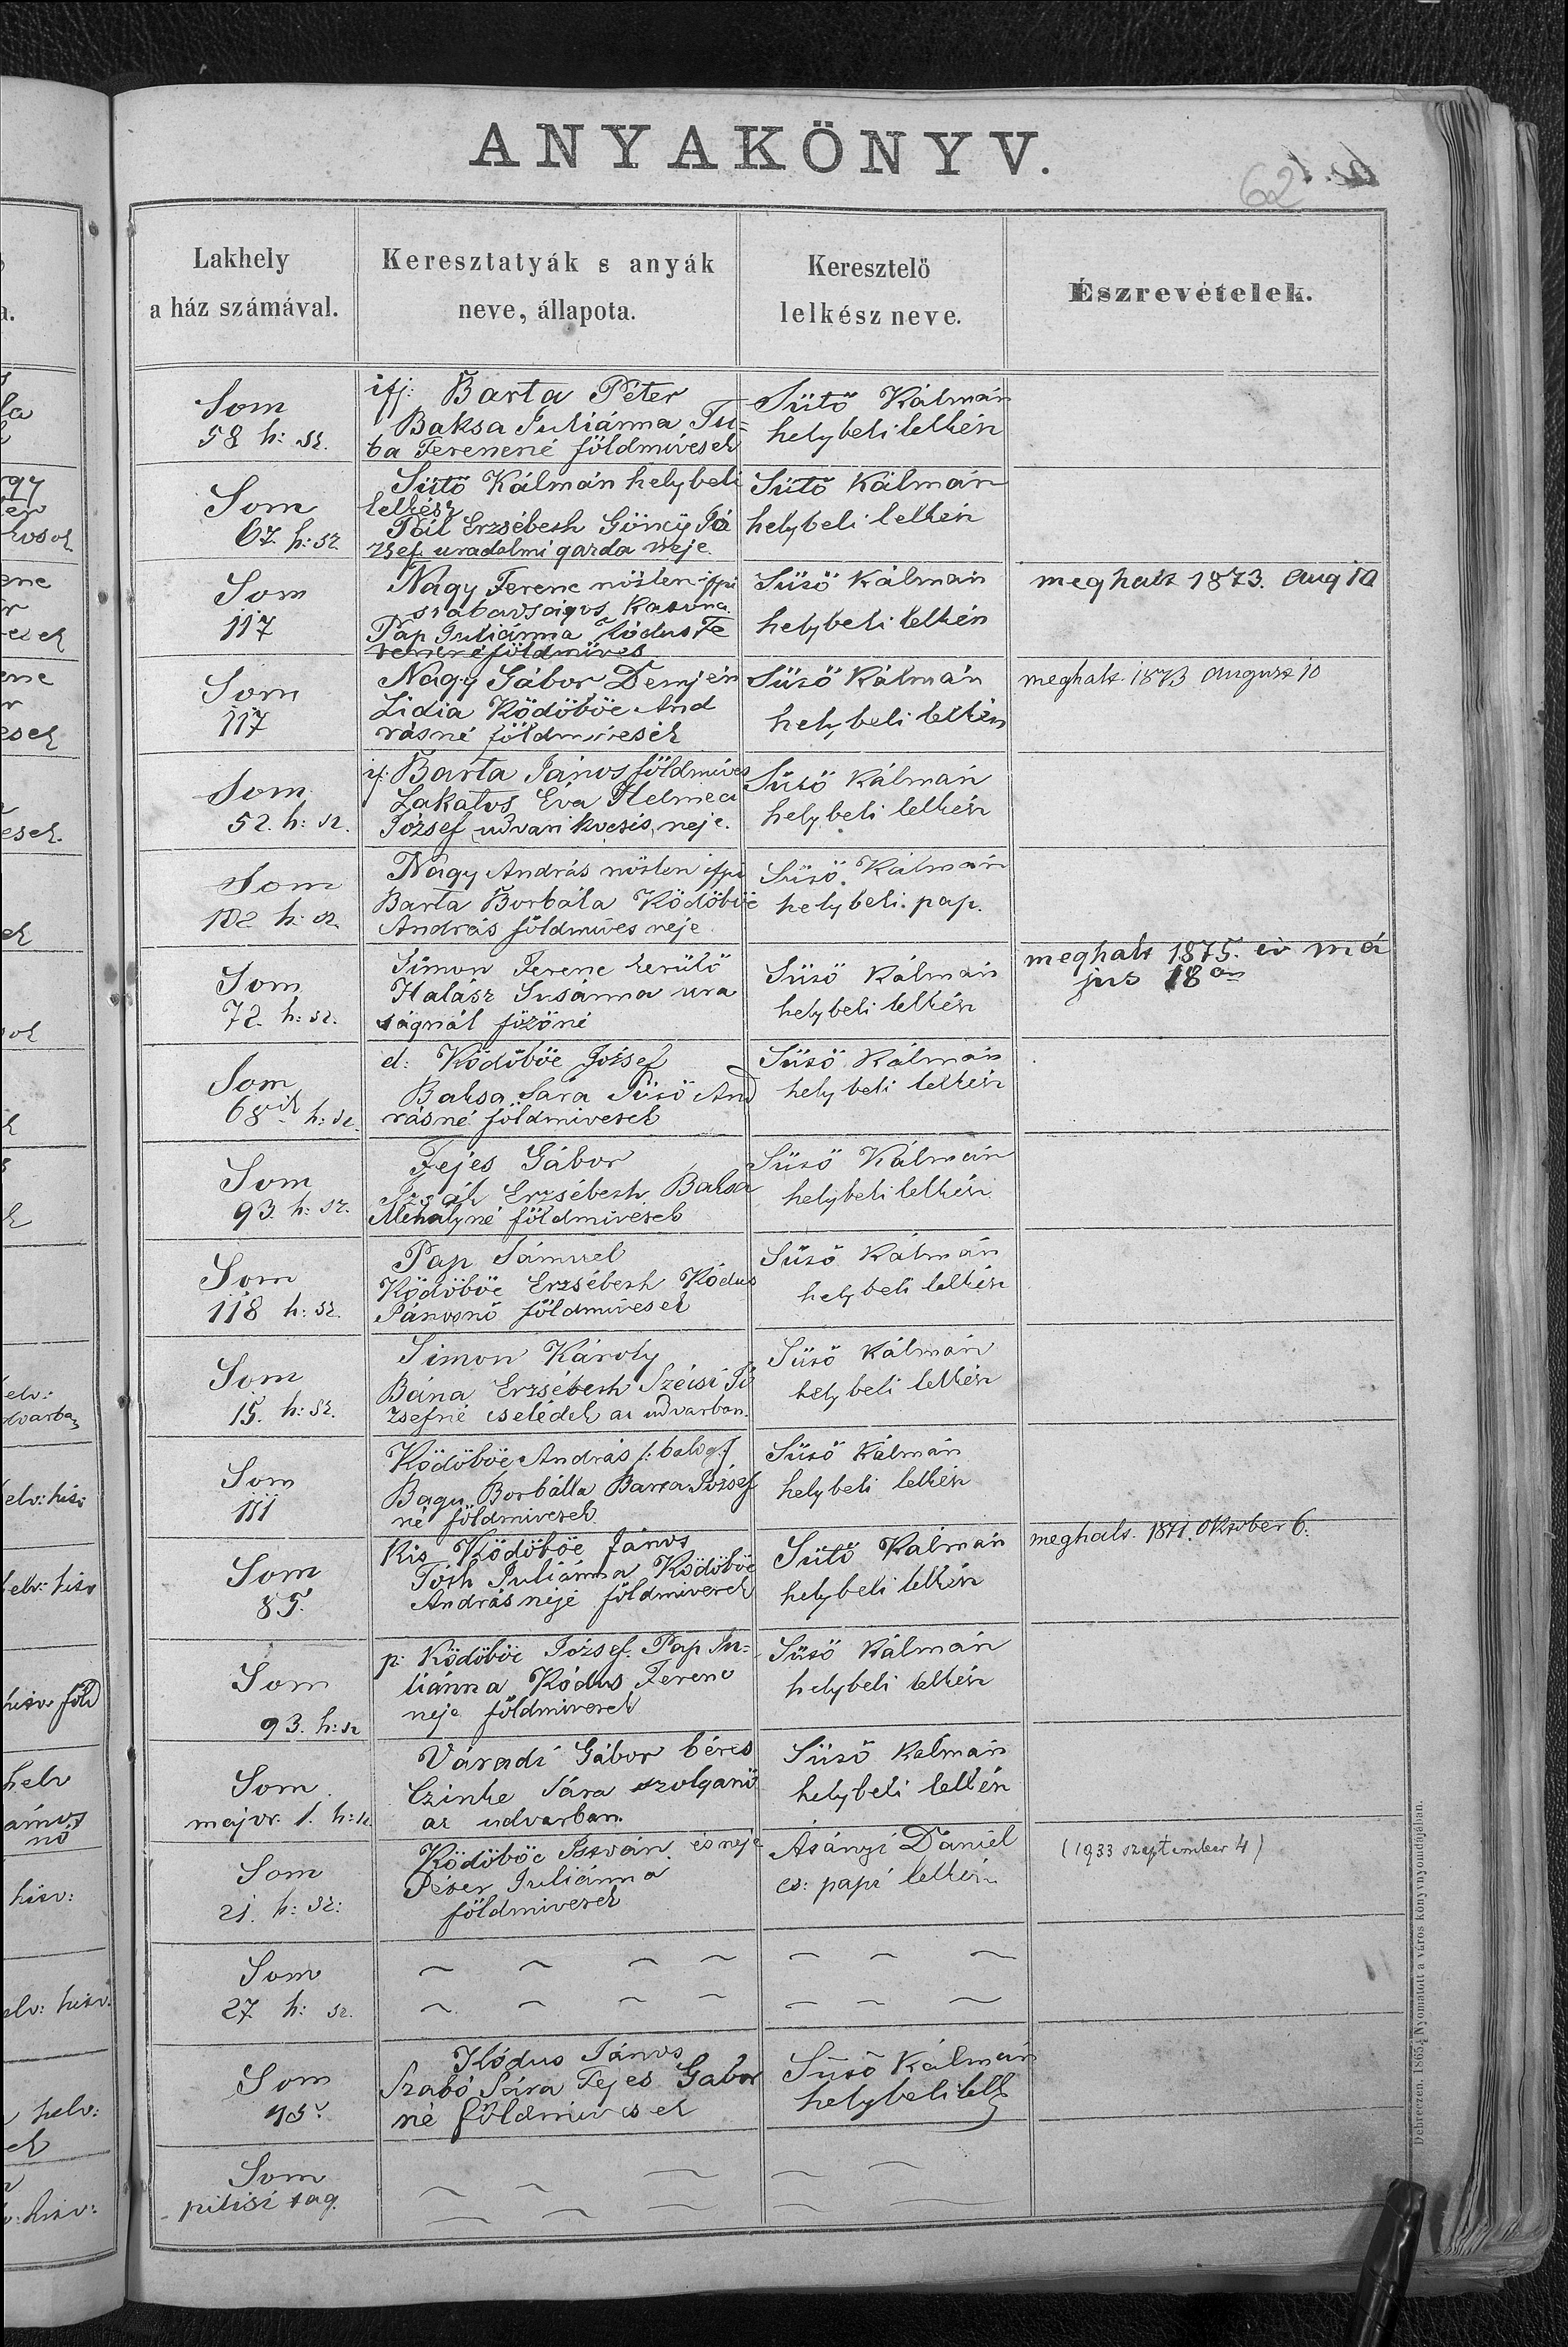 ANYAKÖNYV.
62
Lakhely
a ház számával.
Keresztatyák s anyák
neve, állapota.
Keresztelö
lelkész neve.
Észrevételek.
Som
58 h: sz.
ifj: Barta Péter
Baksa Juliánna Tu=
ba Ferencné földmivesek
Sütő Kálmán
helybeli lelkész
Som
67. h: sz.
Sütő Kálmán helybeli
lelkész
Pál Erzsébeth Gönczy Jó
zsef uradalmi gazda neje.
Sütő Kálmán
helybeli lelkész
Som
117
Nagy Ferenc nőtlen ifju
szabadságos katona.
Pap Juliánna Kódus Fe
rencné földmives
Sütő Kálmán
helybeli lelkész
meghalt 1873. aug 10
Som
117
Nagy Gábor Demjén
Lidia Ködöböc And
rásné földmivesek
Sütő Kálmán
helybeli lelkész
meghalt 1873 august 10
Som
52. h: sz.
if: Barta János földmives
Lakatos Éva Helmeci
József udvari kocsis neje.
Sütő Kálmán
helybeli lelkész
Som
102 h: sz.
Nagy András nőtlen ifju
Barta Borbála Ködöböc
András földmives neje
Sütő Kálmán
helybeli pap.
Som
72. h: sz.
Simon Ferenc kerülő
Halász Susánna ura
ságnál főzőné
Sütő Kálmán
helybeli lelkész
meghalt 1875. év má
jus 18án
Som
68ik h: sz.
d: Ködöböc József
Baksa Sára Sütő And
rásné földmivesek
Sütő Kálmán
helybeli lelkész
Som
93. h: sz.
Fejes Gábor
Izsák Erzsébeth Baksa
Mihályné földmivesek
Sütő Kálmán
helybeli lelkész
Som
118 h: sz.
Pap Sámuel
Ködöböc Erzsébeth Kódus
Jánosnő földmivesek
Sütő Kálmán
helybeli lelkész
Som
15. h: sz.
Simon Károly
Bána Erzsébeth Szécsi Jó
zsefné cselédek az udvarban.
Sütő Kálmán
helybeli lelkész
Som
111
Ködöböc András /: balog :/
Bagu Borbálla Barta József
né földmivesek
Sütő Kálmán
helybeli lelkész
Som
85.
Kis Ködöböc János
Tóth Juliánna Ködöböc
András neje földmivesek
Sütő Kálmán
helybeli lelkész
meghalt. 1871. Oktober 6.
Som
93. h: sz
p: Ködöböc József. Pap Ju=
liánna Kódus Ferenc
neje földmivesek
Sütő Kálmán
helybeli lelkész
Som
major. 1. h: sz
Váradi Gábor béres
Czinke Sára szolganő
az udvarban.
Sütő Kálmán
helybeli lelkész
Som
21. h: sz:
Ködöböc István. és neje
Péter Juliánna
földmivesek
Asányi Dániel
cs: papi lelkész
(1933 szeptember 4)
Som
27 h: sz.
Som
Kódus János
Szabó Sára Fejes Gabor
né földmivesek
Sütő Kálmán
helybeli lelk
Som
pitisi tag.
Debreczen 1865. Nyomatott a város könyvnyomdájában.